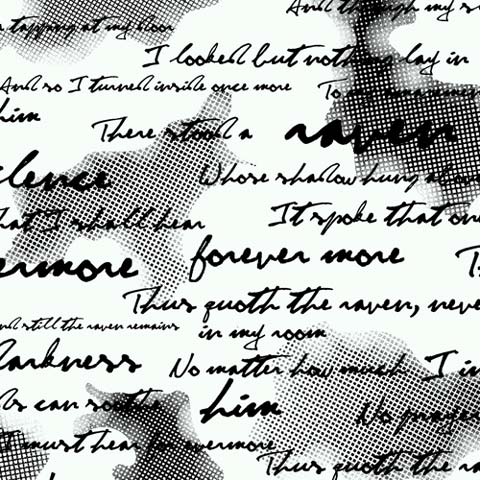 And though my
tapping at my door
I looked but nothing lay in
And so I turned inside once more
To my amazement
him
There stood a raven
Whose shadow hung above
hat I shall hear
It spoke that
ermore
forever more
Thus quoth the raven, neve
still the raven remains
in my room
arkness
No matter how much
I
can soothe
him
No prayer
I must hear for evermore
Thus quoth the